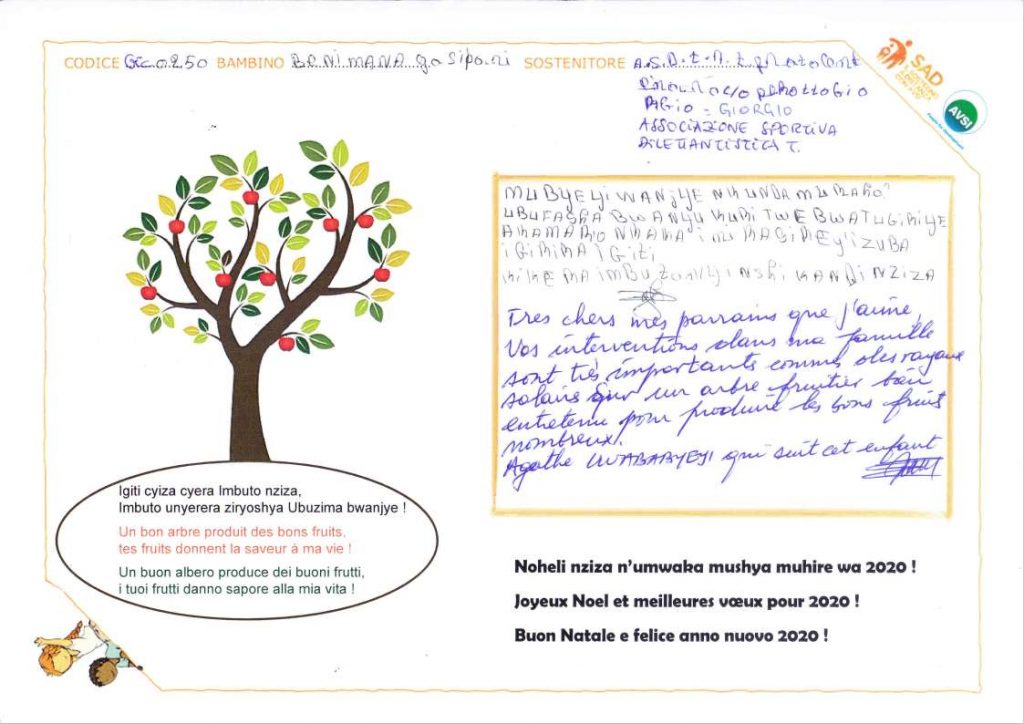 CODICE Gc.0250 BAMBINO BENIMANA gasipani SOSTENITORE A.S.D.
GIORGIO
ASSOCIAZIONE SPORTIVA
DILETTANTISTICA T.
SAD
SOSTEGNO A DISTANZA
AVSI
MUBYEYI WANJYE NKUNDA
UBUFASHA BWANYU KURI TWEBWATUGIRIYE
AKAMARO
IGIRIRA IGITI
IMBUTO NYINSHI KANDI NZIZA
Tres chers mes parrains que j'aime,
Vos interventions dans ma famille
sont très importants comme des rayons
solairs sur un arbre fruitier bien
entretenu pour produire les bons fruits
nombreux.
Agathe UWABABYEYI qui suit cet enfant
Igiti cyiza cyera Imbuto nziza,
Imbuto unyerera ziryoshya Ubuzima bwanjye !
Un bon arbre produit des bons fruits,
tes fruits donnent la saveur à ma vie !
Un buon albero produce dei buoni frutti,
i tuoi frutti danno sapore alla mia vita !
Noheli nziza n'umwaka mushya muhire wa 2020 !
Joyeux Noel et meilleures vœux pour 2020 !
Buon Natale e felice anno nuovo 2020 !